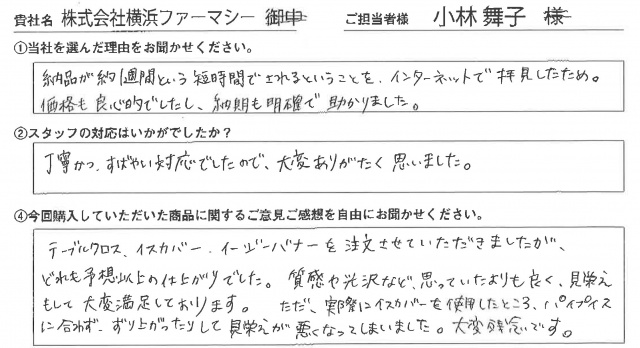 貴社名 株式会社横浜ファーマシー 御中 ご担当者様 小林 舞子 様
①当社を選んだ理由をお聞かせください。
納品が約1週間という短時間で至れるということを、インターネットで拝見したため。
価格も良心的でしたし、納期も明確で助かりました。
②スタッフの対応はいかがでしたか?
丁寧かつ、すばやい対応でしたので、大変ありがたく思いました。
④今回購入していただいた商品に関するご意見ご感想を自由にお聞かせください。
テーブルクロス、イスカバー、イージーバナーを注文させていただきましたが、
どれも予想以上の仕上がりでした。質感や光沢など、思っていたよりも良く、見栄え
もして大変満足しております。ただ、実際にイスカバーを使用したところ、パイプイス
に合わず、ずり上がったりして見栄えが悪くなってしまいました。大変残念です。